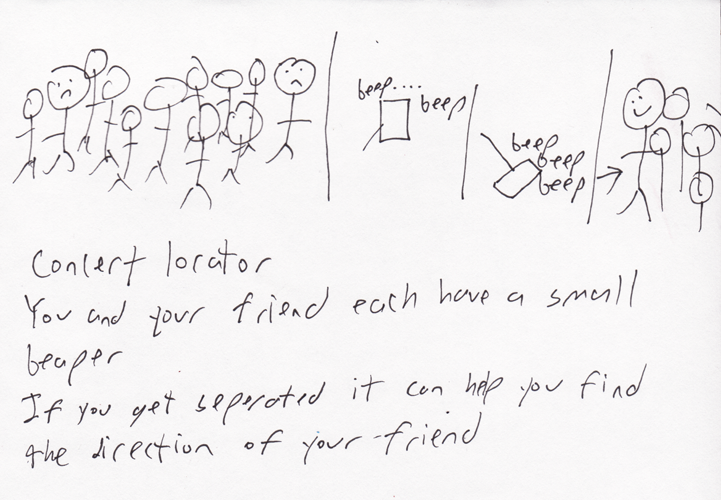 beep....
beep
beep
beep
beep
Concert locator
You and your friend each have a small
beaper
If you get seperated it can help you find
the direction of your friend